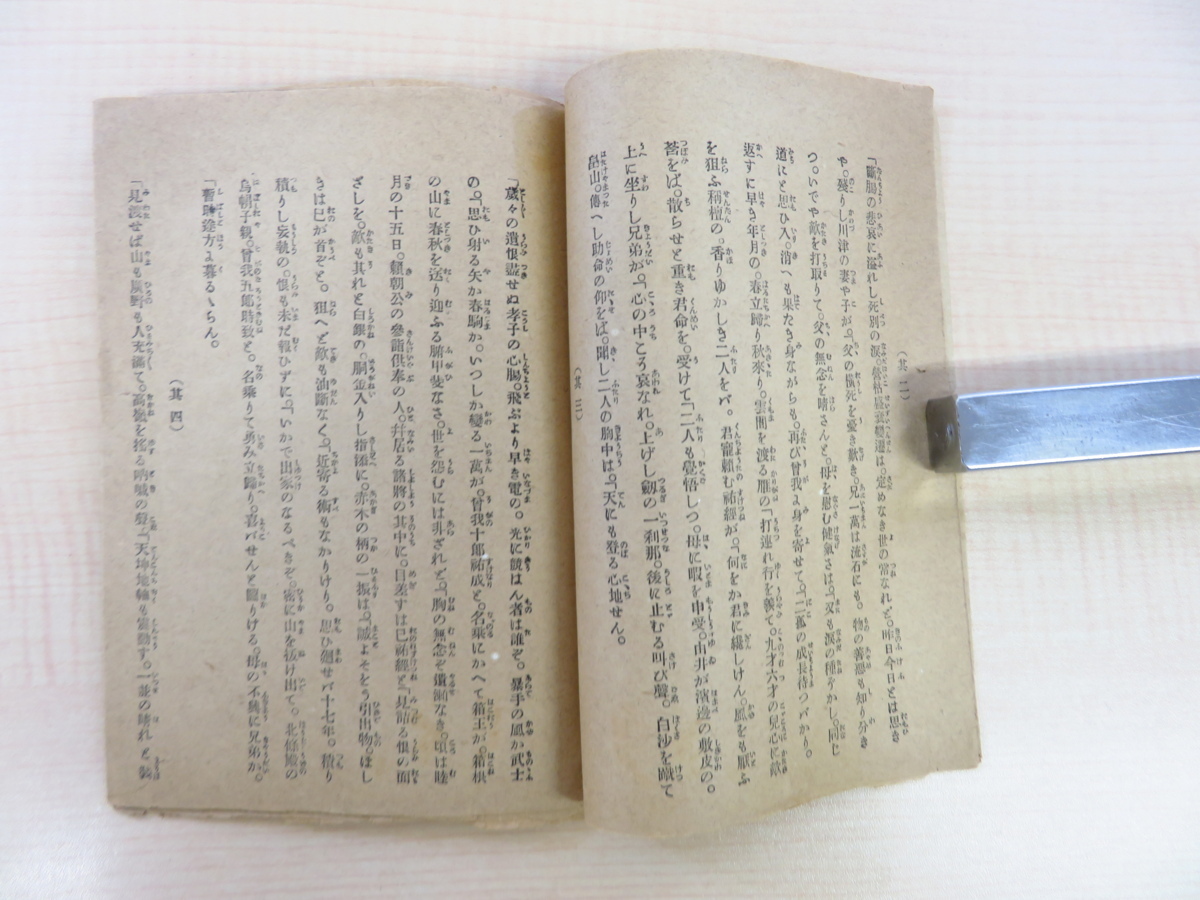 (其二)
「斷腸の悲哀に溢れし死別の涙。榮枯盛衰變遷は。定めなき世の常なれど。昨日今日とは思き
や。殘りし川津の妻や子が。「父の橫死を憂き歎き。兄一萬は流石にも。物の善惡も知り分き
つ。いでや敵を打取りて。父の無念を晴さんと。母を慰む健氣さは。「又も涙の種ぞかし。同じ
道にと思ひ入。消へも果たき身ながらも。再び曾我よ身を寄せて。「二孤の成長待つバかり。
返すに早き年月の。春立歸り秋來り。雲間を渡る雁の「打連れ行を羨て。九才六才の兒心に敵
を狙ふ栴檀の。香りゆかしき二人をバ。君寵賴む祐經が。「何をか君に纔しけん。風をも厭ふ
莟をば。散らせと重き君命を。受けて「二人も覺悟しつ。母に暇を申受。由井が濱邊の敷皮の。
上に坐りし兄弟が。「心の中こう哀なれ。上げし劔の一刹那。後に止むる叫び聲。白沙を蹴て
畠山。傳へし助命の仰をば。聞し二人の胸中は。「天にも登る心地せん。
(其三)
「歲々の遺恨盡せぬ孝子の心腸。飛ぶより早き電の。光に競はん者は誰ぞ。暴手の風か武士
の。「思ひ射る矢か春駒か。いつしか變る一萬が。曾我十郎祐成と。名乘にかへて箱王が。箱根
の山に春秋を送り迎ふる腑甲斐なさ。世を怨むには非ざれど。「胸の無念ぞ遺瀬なき。頃は睦
月の十五日。賴朝公の參詣供奉の人。幷居る諸將の其中に。目差すは巳祐經と「見詰る恨の面
ざしを。敵も其れと白銀の。胴金入りし指添に。赤木の柄の一振は。「誠よそをう引出物。ほし
きは巳が首ぞと。狙へど敵も油斷なく。「近寄る術もなかりけり。思ひ廻せバ十七年。積り
積りし妄執の。恨も未だ報ひずに。「いかで出家のなるべきぞ。密に山を拔け出て。北條殿の
烏帽子親。曾我五郎時致と。名乘りて勇み立歸り。喜バせんと圖りける。母の不興に兄弟か。
「暫時途方よ暮るゝらん。
(其四)
「見渡せば山も廣野も人充滿て。高殿を搖る吶喊の聲。「天坤地軸も震動す。一並の晴れと裝